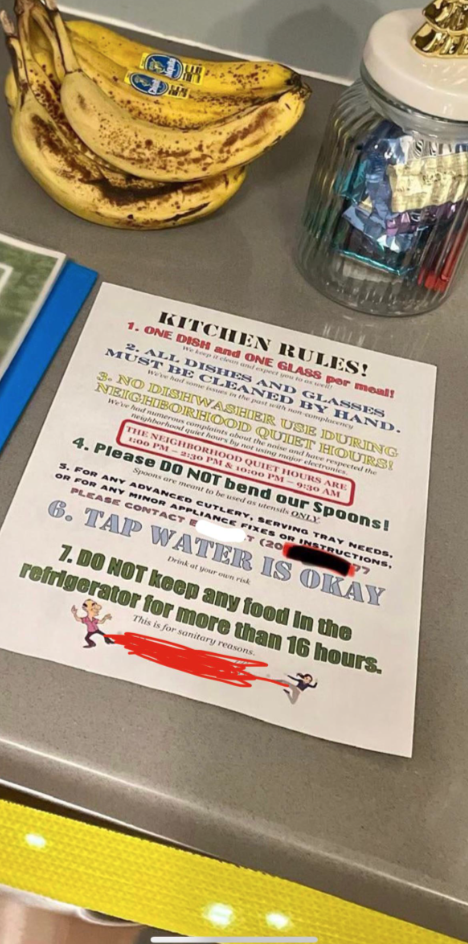 KITCHEN RULES!
1. ONE DISH and ONE GLASS per meal!
We keep it clean and expect you to as well!
2. ALL DISHES AND GLASSES
MUST BE CLEANED BY HAND.
We've had some issues in the past with non-complacency
3. NO DISHWASHER USE DURING
NEIGHBORHOOD QUIET HOURS!
We've had numerous complaints about the noise and have respected the
neighborhood quiet hours by not using major electronics.
THE NEIGHBORHOOD QUIET HOURS ARE
1:00 PM – 2:30 PM & 10:00 PM – 9:30 AM
4. Please DO NOT bend our Spoons!
Spoons are meant to be used as utensils ONLY
5. FOR ANY ADVANCED CUTLERY, SERVING TRAY NEEDS,
OR FOR ANY MINOR APPLIANCE FIXES OR INSTRUCTIONS,
PLEASE CONTACT
6. TAP WATER IS OKAY
Drink at your own risk
7. DO NOT keep any food in the
refrigerator for more than 16 hours.
This is for sanitary reasons.